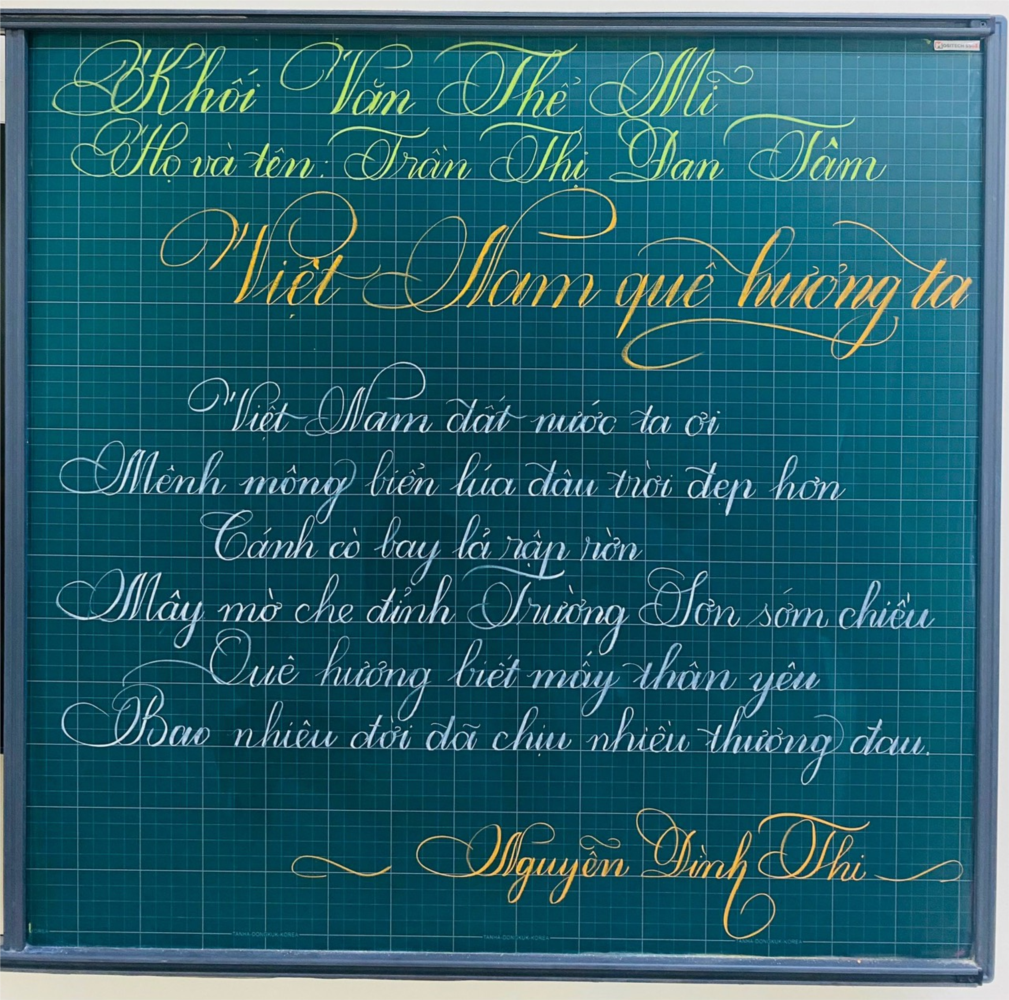 Khối Văn Thể Mĩ
Họ và tên: Trần Thị Đan Tâm
Việt Nam quê hương ta
Việt Nam đất nước ta ơi
Mênh mông biển lúa đâu trời đẹp hơn
Cánh cò bay lả rập rờn
Mây mờ che đỉnh Trường Sơn sớm chiều
Quê hương biết mấy thân yêu
Bao nhiêu đời đã chịu nhiều thương đau.
Nguyễn Đình Thi